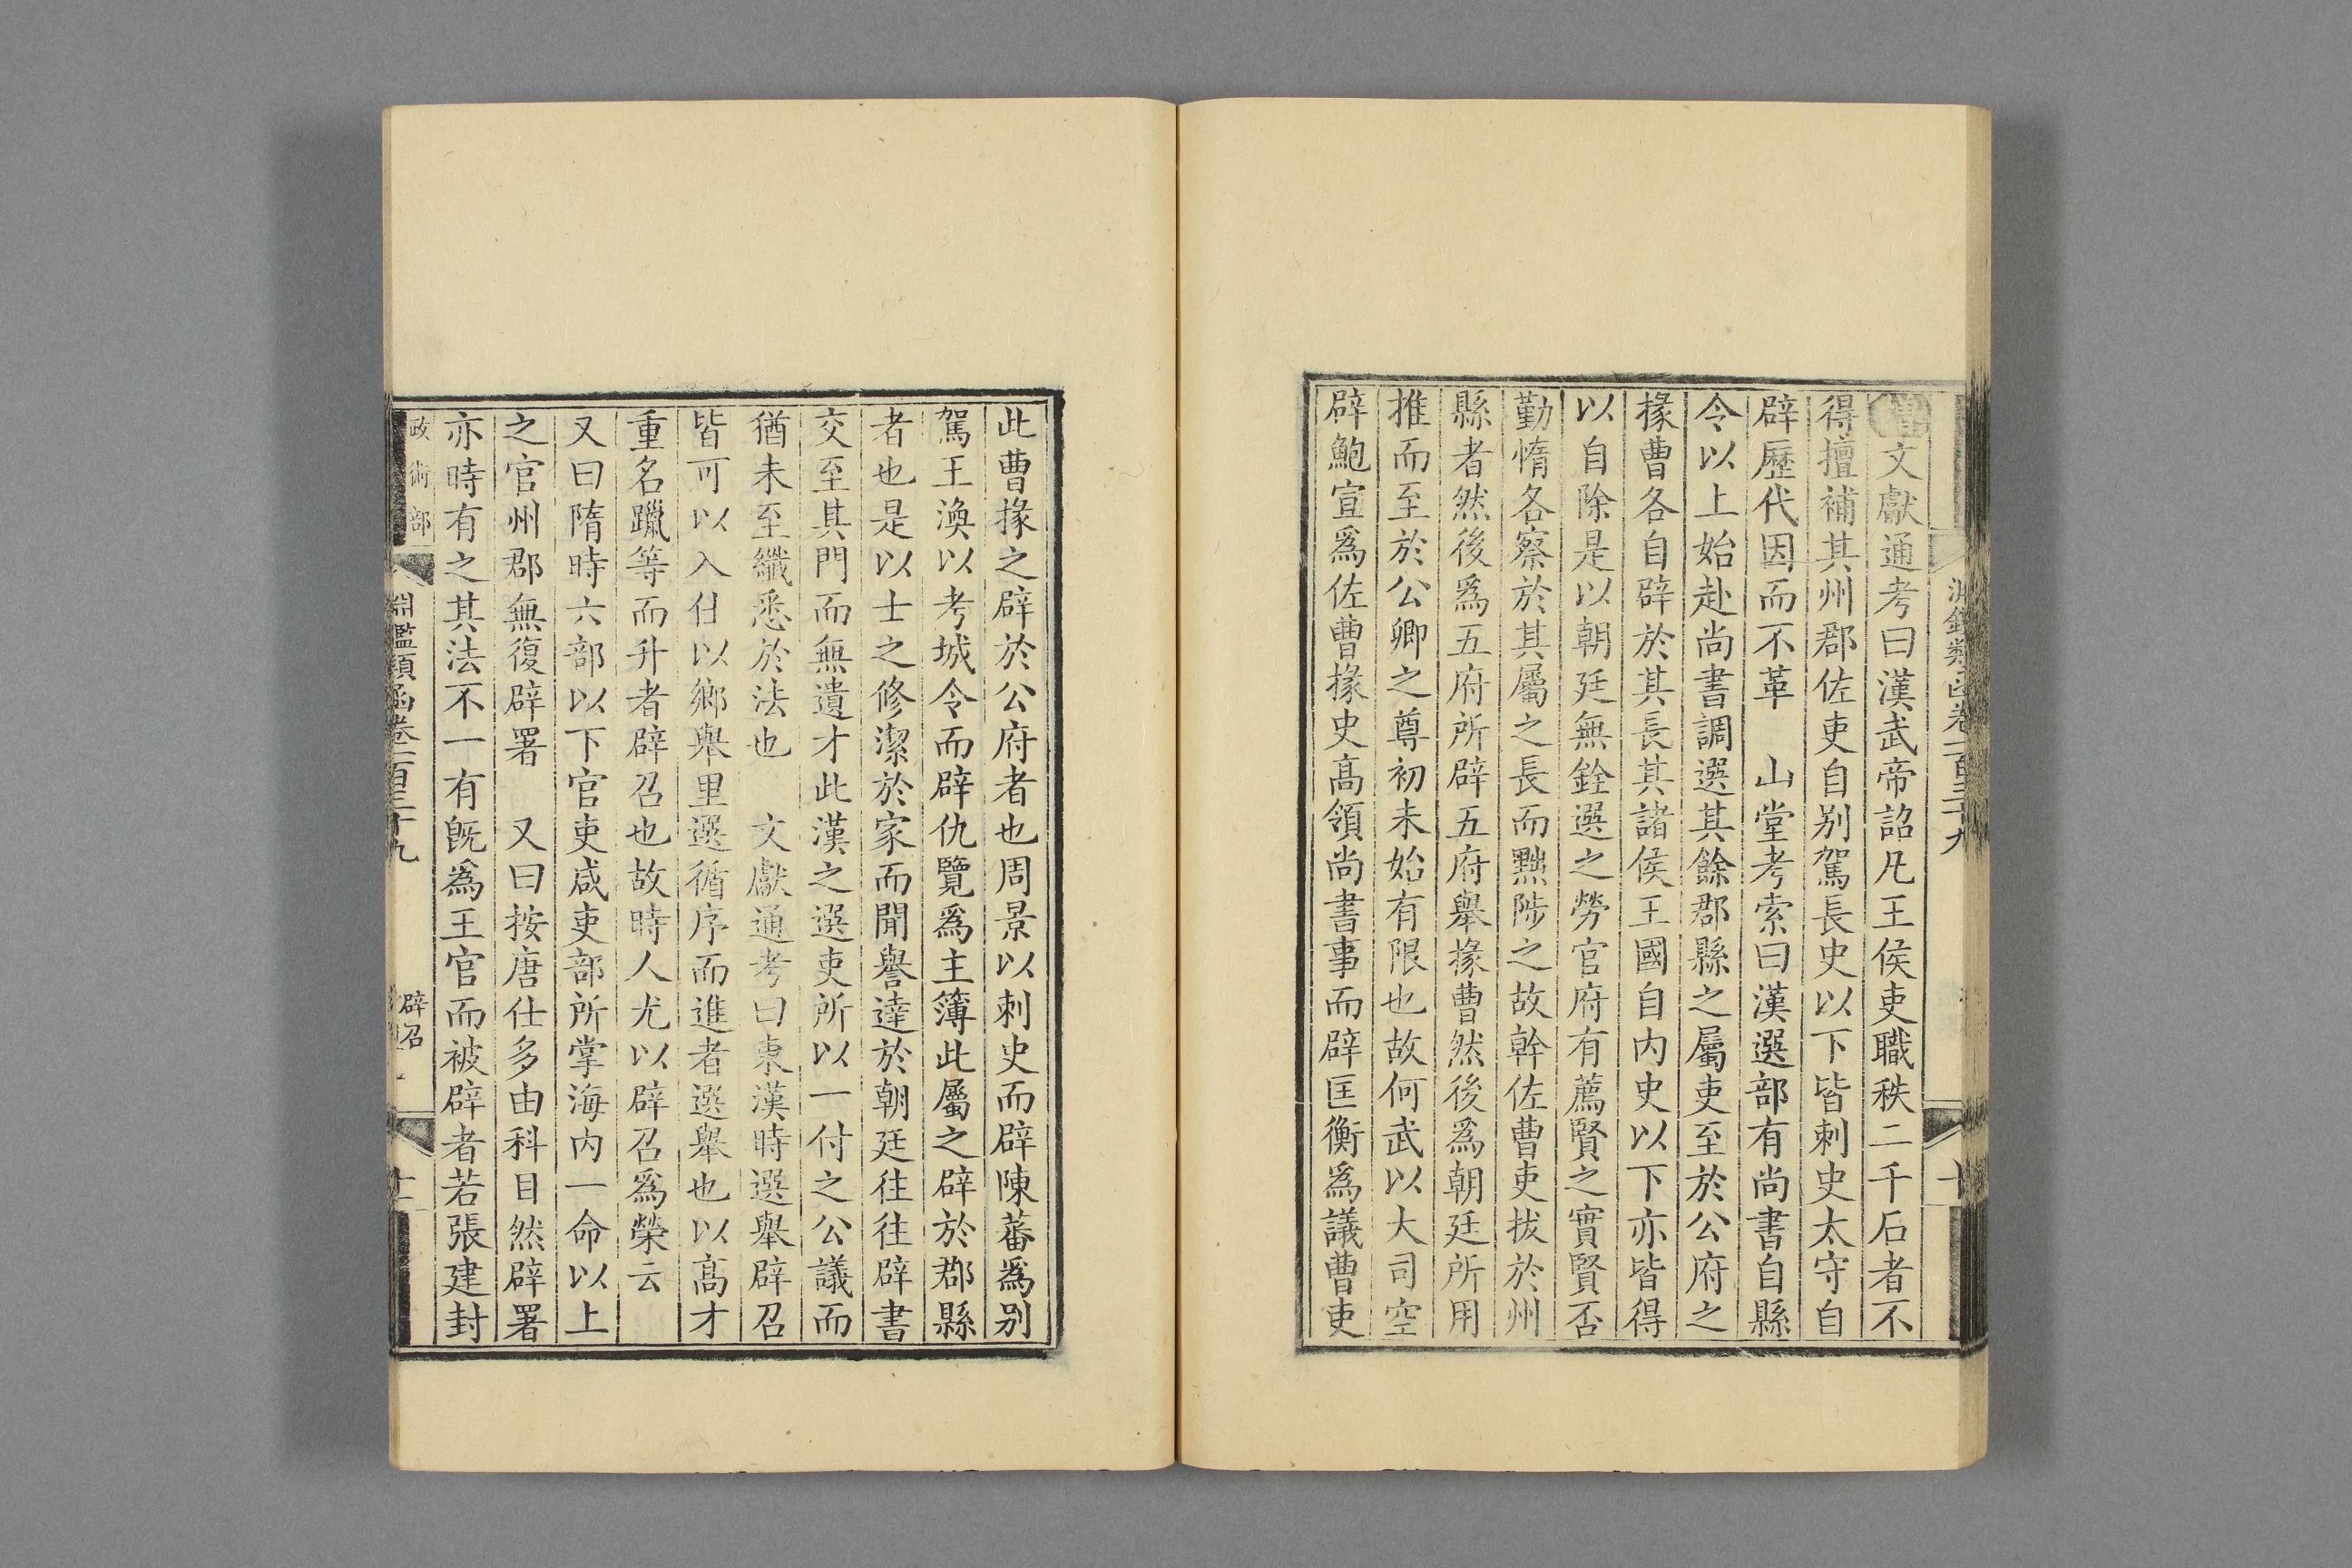 淵鑑類函卷一百三十九
文獻通考曰漢武帝詔凡王侯吏職秩二千石者不
得擅補其州郡佐吏自别駕長史以下皆刺史太守自
辟歷代因而不革　山堂考索曰漢選部有尚書自縣
令以上始赴尚書調選其餘郡縣之屬吏至於公府之
掾曹各自辟於其長其諸侯王國自内史以下亦皆得
以自除是以朝廷無銓選之勞官府有薦賢之實賢否
勤惰各察於其屬之長而黜陟之故幹佐曹吏拔於州
縣者然後爲五府所辟五府舉掾曹然後爲朝廷所用
推而至於公卿之尊初未始有限也故何武以大司空
辟鮑宣爲佐曹掾史高領尚書事而辟匡衡爲議曹吏
此曹掾之辟於公府者也周景以刺史而辟陳蕃爲别
駕王渙以考城令而辟仇覽爲主簿此屬之辟於郡縣
者也是以士之修潔於家而聞譽達於朝廷往往辟書
交至其門而無遺才此漢之選吏所以一付之公議而
猶未至纖悉於法也　文獻通考曰東漢時選舉辟召
皆可以入仕以鄉舉里選循序而進者選舉也以高才
重名躐等而升者辟召也故時人尤以辟召爲榮云
又曰隋時六部以下官吏咸吏部所掌海内一命以上
之官州郡無復辟署　又曰按唐仕多由科目然辟署
亦時有之其法不一有旣爲王官而被辟者若張建封
政術部
淵鑑類函卷一百三十九
辟召
十一